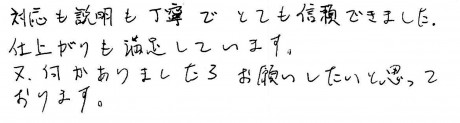 対応も説明も丁寧でとても信頼できました.
仕上がりも満足しています。
又、何かありましたらお願いしたいと思って
おります。